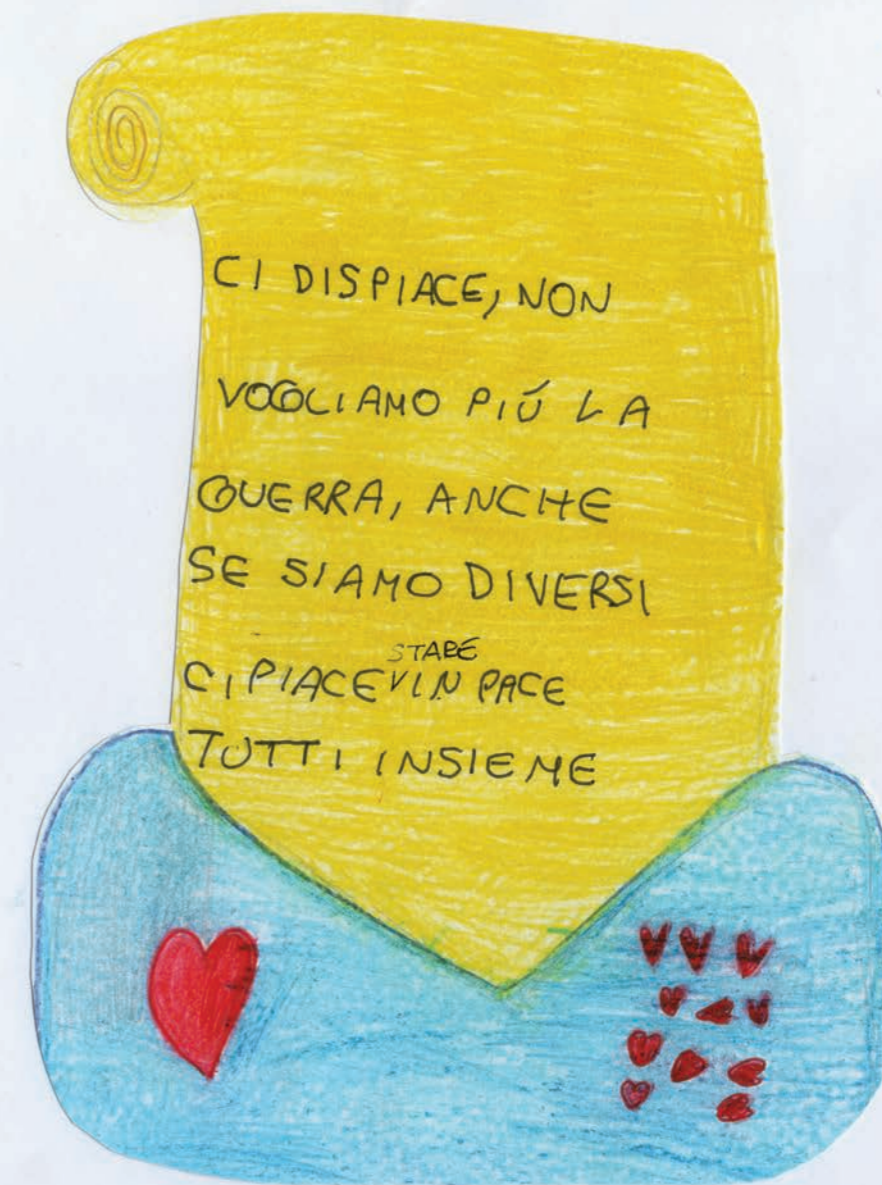 CI DISPIACE, NON
VOGLIAMO PIÚ LA
GUERRA, ANCHE
SE SIAMO DIVERSI
STARE
CI PIACE V IN PACE
TUTTI INSIEME